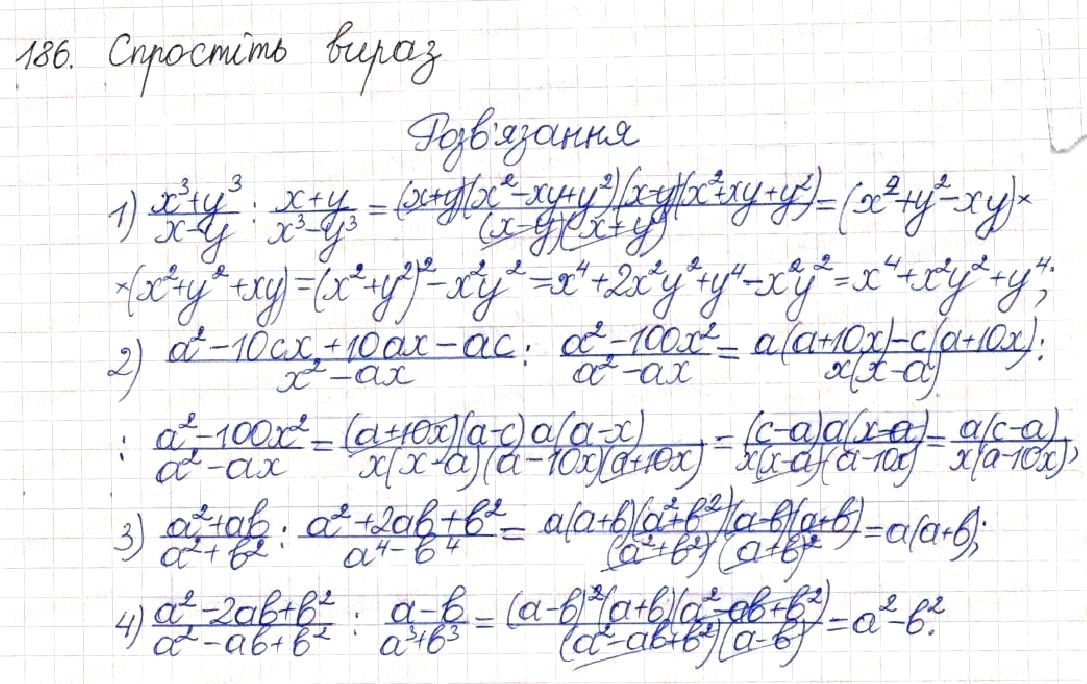 186. Спростіть вираз
Розв'язання
1) (x³+y³)/(x-y) : (x+y)/(x³-y³) = ((x+y)(x²-xy+y²)(x-y)(x²+xy+y²))/((x-y)(x+y)) = (x²+y²-xy)×
×(x²+y²+xy)=(x²+y²)²-x²y²=x⁴+2x²y²+y⁴-x²y²=x⁴+x²y²+y⁴;
2) (a²-10cx+10ax-ac)/(x²-ax) : (a²-100x²)/(a²-ax) = (a(a+10x)-c(a+10x))/(x(x-a)) :
: (a²-100x²)/(a²-ax) = ((a+10x)(a-c)a(a-x))/(x(x-a)(a-10x)(a+10x)) = ((c-a)a(x-a))/(x(x-a)(a-10x)) = (a(c-a))/(x(a-10x)),
3) (a²+ab)/(a²+b²) : (a²+2ab+b²)/(a⁴-b⁴) = (a(a+b)(a²+b²)(a-b)(a+b))/((a²+b²)(a+b)²) = a(a+b);
4) (a²-2ab+b²)/(a²-ab+b²) : (a-b)/(a³+b³) = ((a-b)²(a+b)(a²-ab+b²))/((a²-ab+b²)(a-b)) = a²-b².